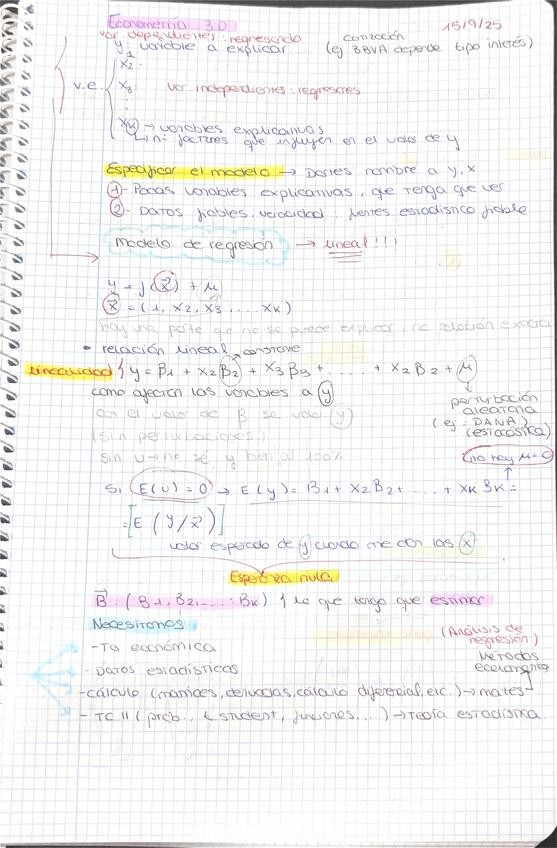 Econometría 3D
15/9/25
var. dependientes: regresando
cotización
y: variable a explicar (ej BBVA depende tipo interés)
v.e.
1
x2:
x3: var. independientes: regresores
:
xk → variables explicativas
factores que influyen en el valor de y
Especificar el modelo → Darles nombre a y, x
1- Pocas variables explicativas, que tenga que ver
2- Datos fiables, veracidad: fuentes estadístico fiable
Modelo de regresión → lineal!!!
y = f(x) + μ
x = (1, x2, x3, ... xk)
hay una parte que no se puede explicar, no relación exacta
• relación lineal constante
Linealidad { y = B1 + x2 B2 + x3 B3 + ..... + x2 B2 + μ
como afectan las variables a y
perturbación
aleatoria
(ej: DANA)
(estocástica)
con el valor de B se valo y
(sin perturbaciones)
sin u → no sé y bien al 100%
no hay μ = 0
Si E(u) = 0 → E(y) = B1 + x2 B2 + ... + xk Bk =
= [E (y/x)]
valor esperado de y cuando me dan las x
Esperanza nula
B: (B1, B2, ... Bk) } lo que tengo que estimar
Necesitamos
(Análisis de
regresión)
- Ta económica
Métodos
- Datos estadísticos
- cálculo (matrices, derivadas, cálculo diferencial, etc.) → mates
- TC II (prob.., t student, funciones...) → Teoría estadística